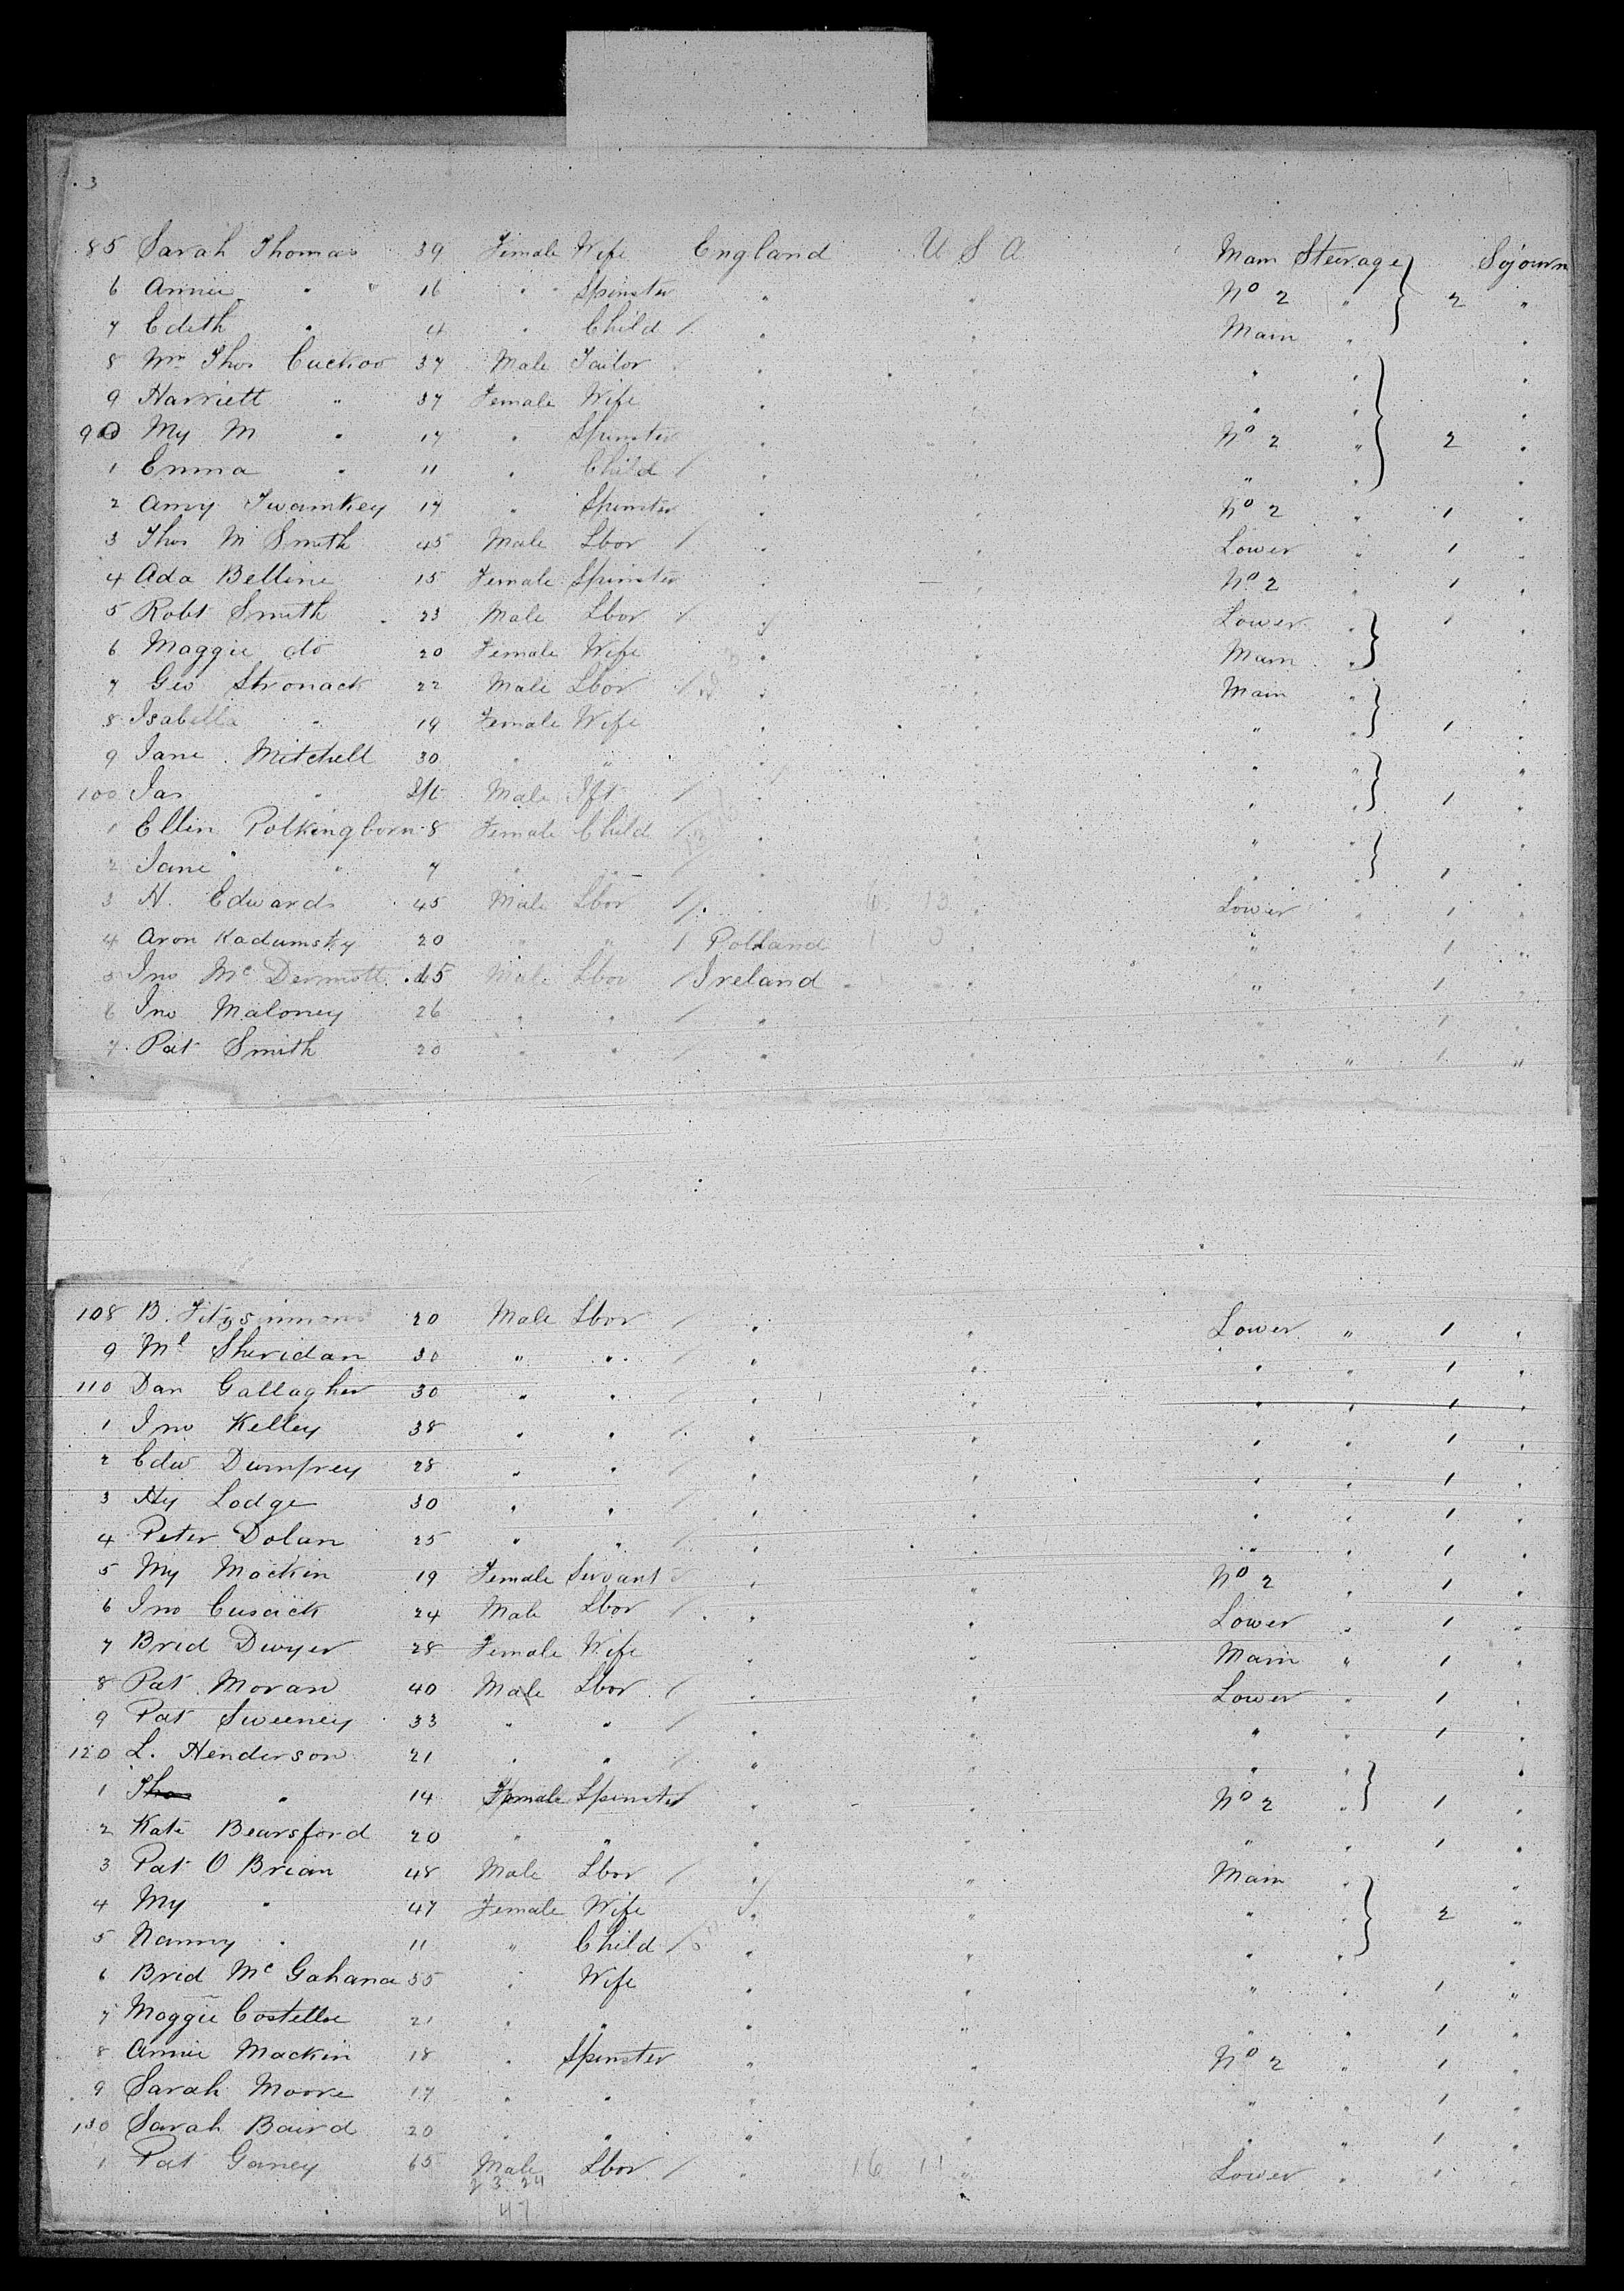 3
85 Sarah Thomas 39 Female Wife England U S A Main Steerage Sojourn
6 Annie " " 16 " " Spinster " " No 2 " 2 "
7 Edith " 4 " Child / " " Main " "
8 Mr Thos Cuckoo 37 Male Tailor " " " " "
9 Harriett " 37 Female Wife " " " " "
90 My M " 17 " Spinster " " No 2 " 2 "
1 Emma " 11 " Child / " " " " "
2 Amy Twamkey 17 " Spinster " " No 2 " 1 "
3 Thos M Smith 45 Male Lbor / " " Lower " 1 "
4 Ada Belline 15 Female Spinster " " No 2 " 1 "
5 Robt Smith 23 Male Lbor / " " Lower " 1 "
6 Maggie do 20 Female Wife " " Main " "
7 Geo Stronack 22 Male Lbor / " " Main "
8 Isabella " 19 Female Wife " " " " 1 "
9 Jane Mitchell 30 " " " " " " "
100 Jas " Male Ift / " " " " 1 "
1 Ellin Polkinghorn 8 Female Child / " " " " "
2 Jane " " 7 " " / " " " " 1 "
3 H. Edwards 45 Male Lbor / " 6 13 " Lower " 1 "
4 Aron Kadumsky 20 " " / Polland 1 0 " " " 1 "
5 Jno Mc Dermott 45 Male Lbor / Ireland " " " 1 "
6 Jno Maloney 26 " " / " " " " 1 "
7 Pat Smith 20 " " / " " " " 1 "
108 B. Fitzsimmons 20 Male Lbor / " " Lower " 1 "
9 Ml Sheridan 30 " " / " " " " 1 "
110 Dan Gallagher 30 " " / " " " " 1 "
1 Jno Kelley 38 " " / " " " " 1 "
2 Edw Dumfrey 28 " " / " " " " 1 "
3 Hy Lodge 30 " " / " " " " 1 "
4 Peter Dolan 25 " " / " " " " 1 "
5 My Mackin 19 Female Servant " " No 2 " 1 "
6 Jno Cusack 24 Male Lbor / " " Lower " 1 "
7 Brid Dwyer 28 Female Wife " " Main " 1 "
8 Pat Moran 40 Male Lbor / " " Lower " 1 "
9 Pat Sweeney 33 " " / " " " " 1 "
120 L. Henderson 21 " " / " " " " "
1 Thos " 14 Female Spinster " " No 2 " 1 "
2 Kate Bearsford 20 " " " " " " 1 "
3 Pat O Brian 48 Male Lbor / " " Main " "
4 My " 47 Female Wife " " " " 2 "
5 Nanny " 11 " Child / " " " " "
6 Brid Mc Gahana 55 " Wife " " " " 1 "
7 Maggie Costelloe 21 " " " " " " 1 "
8 Annie Mackin 18 " Spinster " " No 2 " 1 "
9 Sarah Moore 17 " " " " " " 1 "
130 Sarah Baird 20 " " " " " " 1 "
1 Pat Ganey 65 Male Lbor / " 16 11 " Lower " 1 "
23 24
47